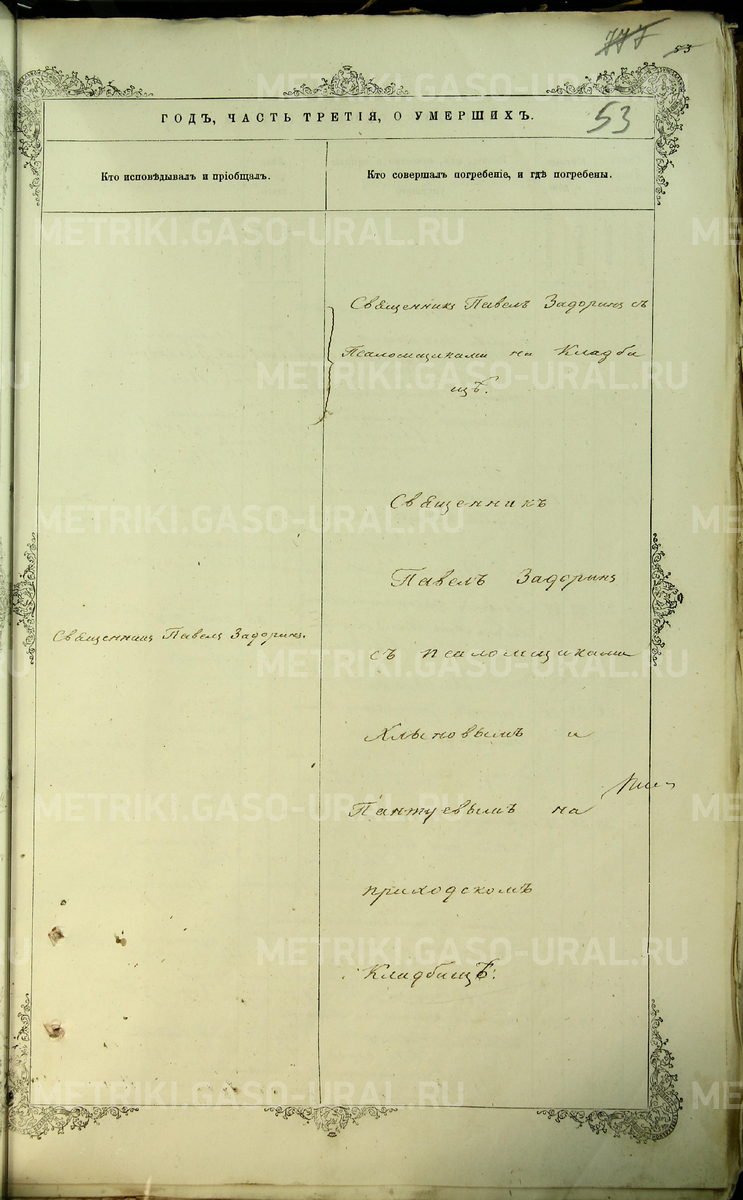 53
ГОДЪ, ЧАСТЬ ТРЕТІЯ, О УМЕРШИХЪ.
53
Кто исповѣдывалъ и пріобщалъ.
Кто совершалъ погребеніе, и гдѣ погребены.
Священникъ Павелъ Задоринъ съ
Псаломщиками на Кладби
щѣ.
Священникъ
Павелъ Задоринъ
Священникъ Павелъ Задоринъ.
съ псаломщиками
Хлыновымъ и
Пантуевымъ на
приходскомъ
Кладбищѣ.
METRIKI.GASO-URAL.RU